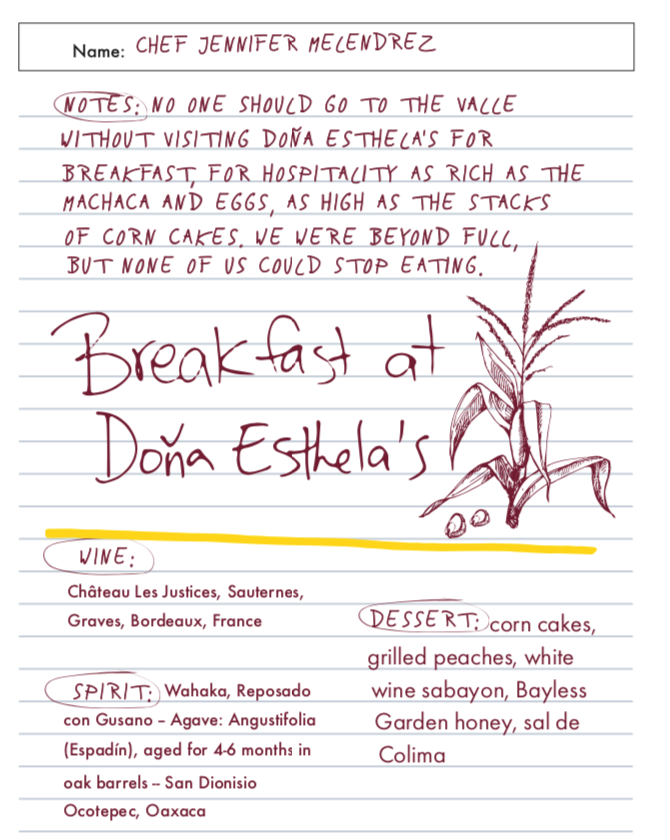 Name: CHEF JENNIFER MELENDREZ
NOTES: NO ONE SHOULD GO TO THE VALLE
WITHOUT VISITING DOÑA ESTHELA'S FOR
BREAKFAST, FOR HOSPITALITY AS RICH AS THE
MACHACA AND EGGS, AS HIGH AS THE STACKS
OF CORN CAKES. WE WERE BEYOND FULL,
BUT NONE OF US COULD STOP EATING.
Breakfast at
Doña Esthela's
WINE:
Château Les Justices, Sauternes,
Graves, Bordeaux, France
SPIRIT: Wahaka, Reposado
con Gusano – Agave: Angustifolia
(Espadín), aged for 4-6 months in
oak barrels -- San Dionisio
Ocotepec, Oaxaca
DESSERT: corn cakes,
grilled peaches, white
wine sabayon, Bayless
Garden honey, sal de
Colima